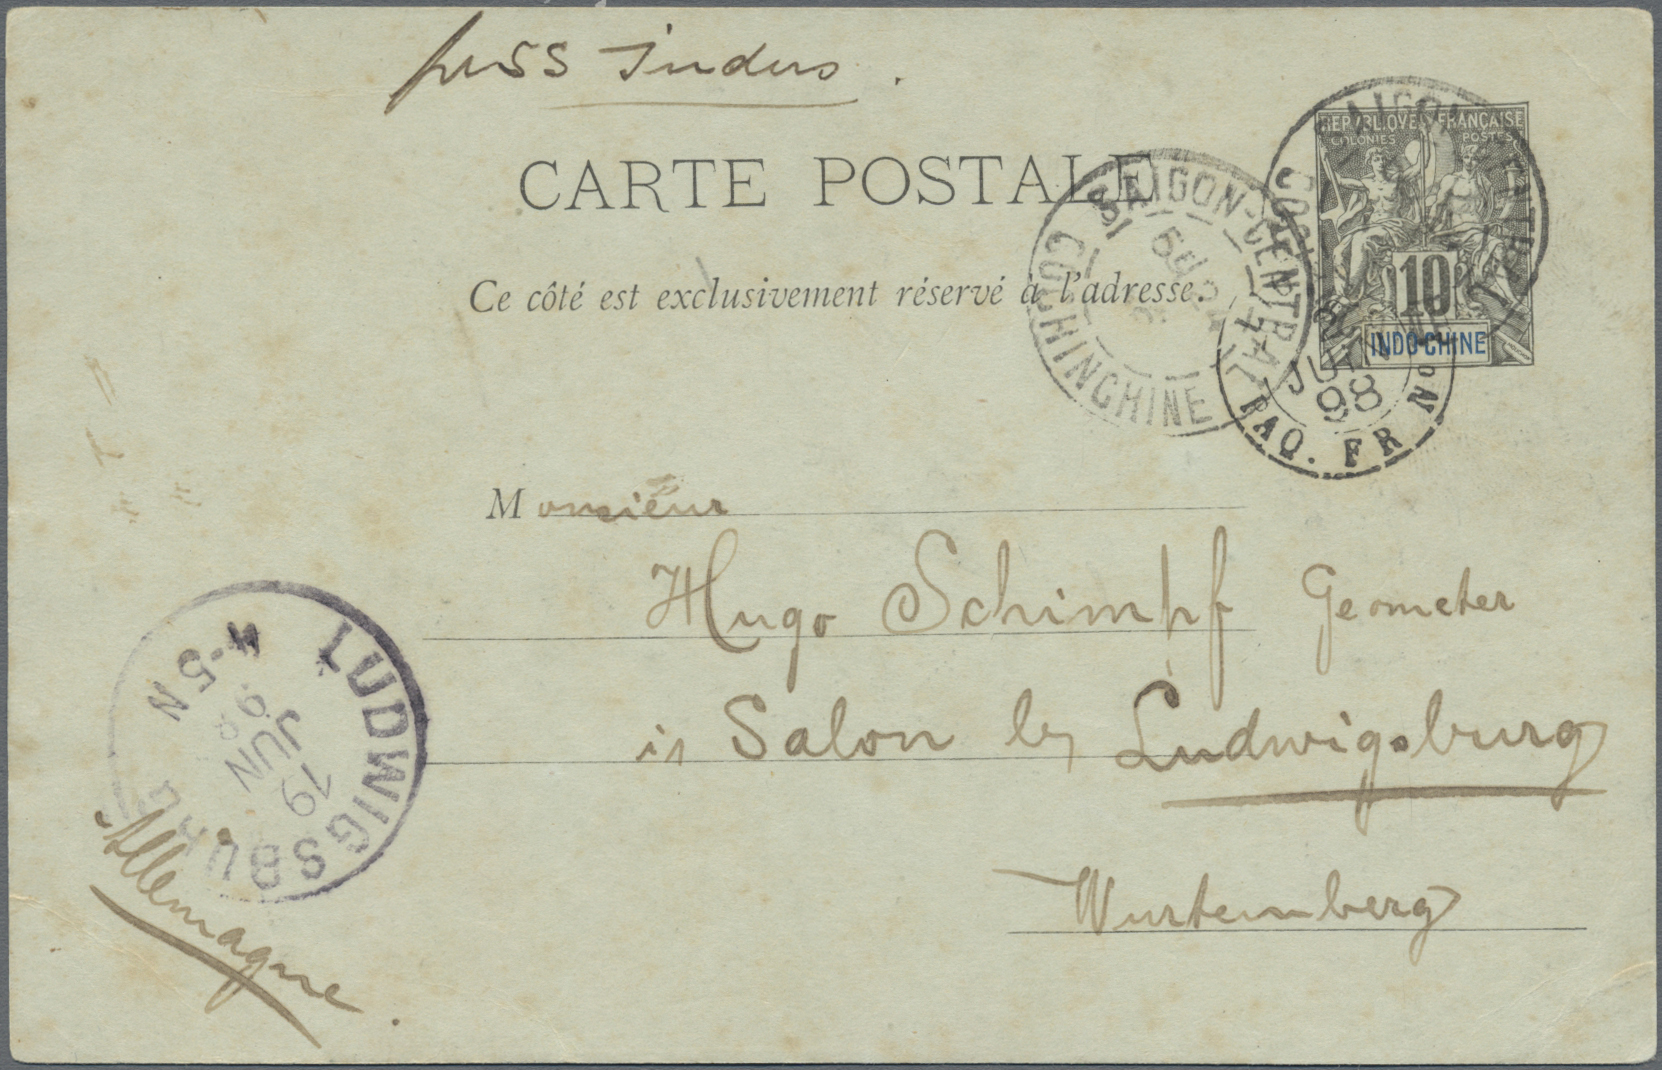 per SS Indus.
REPVBLIQVE FRANÇAISE
COLONIES POSTES
10
INDO-CHINE
CARTE POSTALE
SAIGON-CENTRAL
COCHINCHINE
Ce côté est exclusivement réservé à l'adresse.
PAQ. FR Nº
JUIN
98
Monsieur
Hugo Schimpf Geometer
in Salon by Ludwigsburg
Wurtemberg
LUDWIGSBURG
19
JUN
98
4-5N
Allemagne.